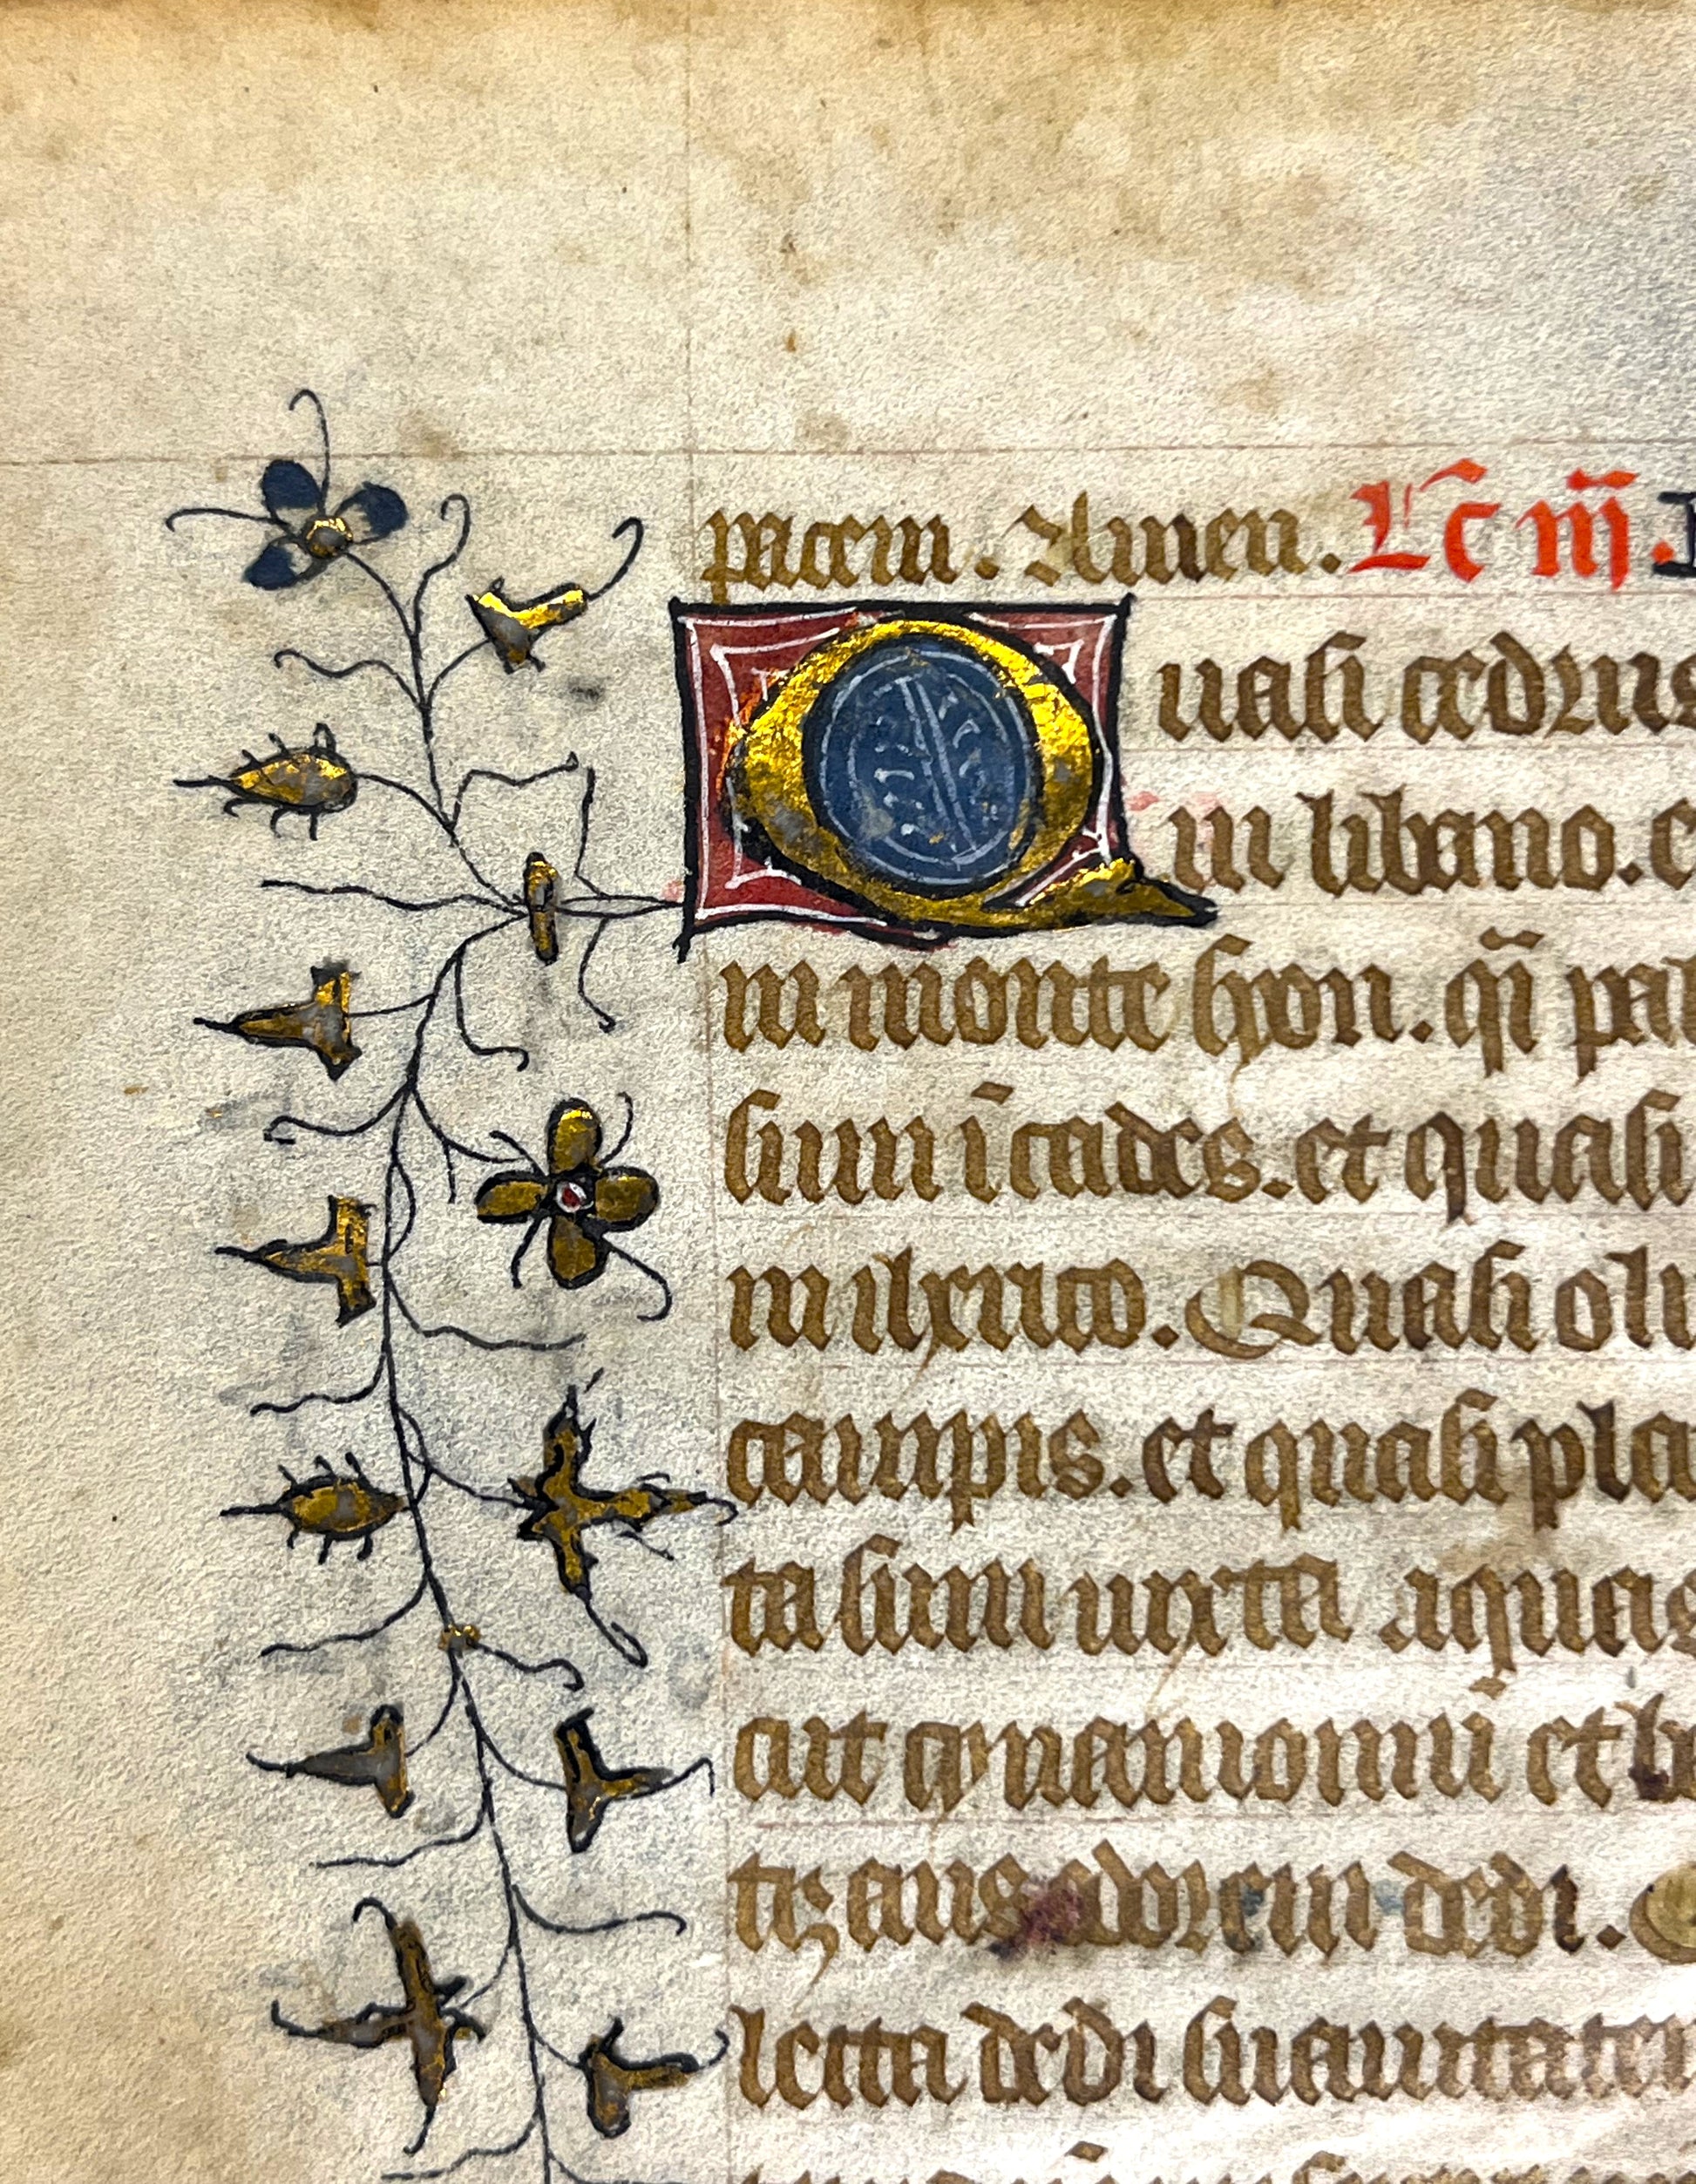 pacem. Amen. Lc̄ iij.
Quasi cedrus
in libano. e
in monte syon. qĩ pal
sum ī cades. et quasi
in iherico. Quasi oli
campis. et quasi pla
ta sum iuxta aquas
cut cynamomū et b
tizans odorem dedi.
lecta dedi suauitatem